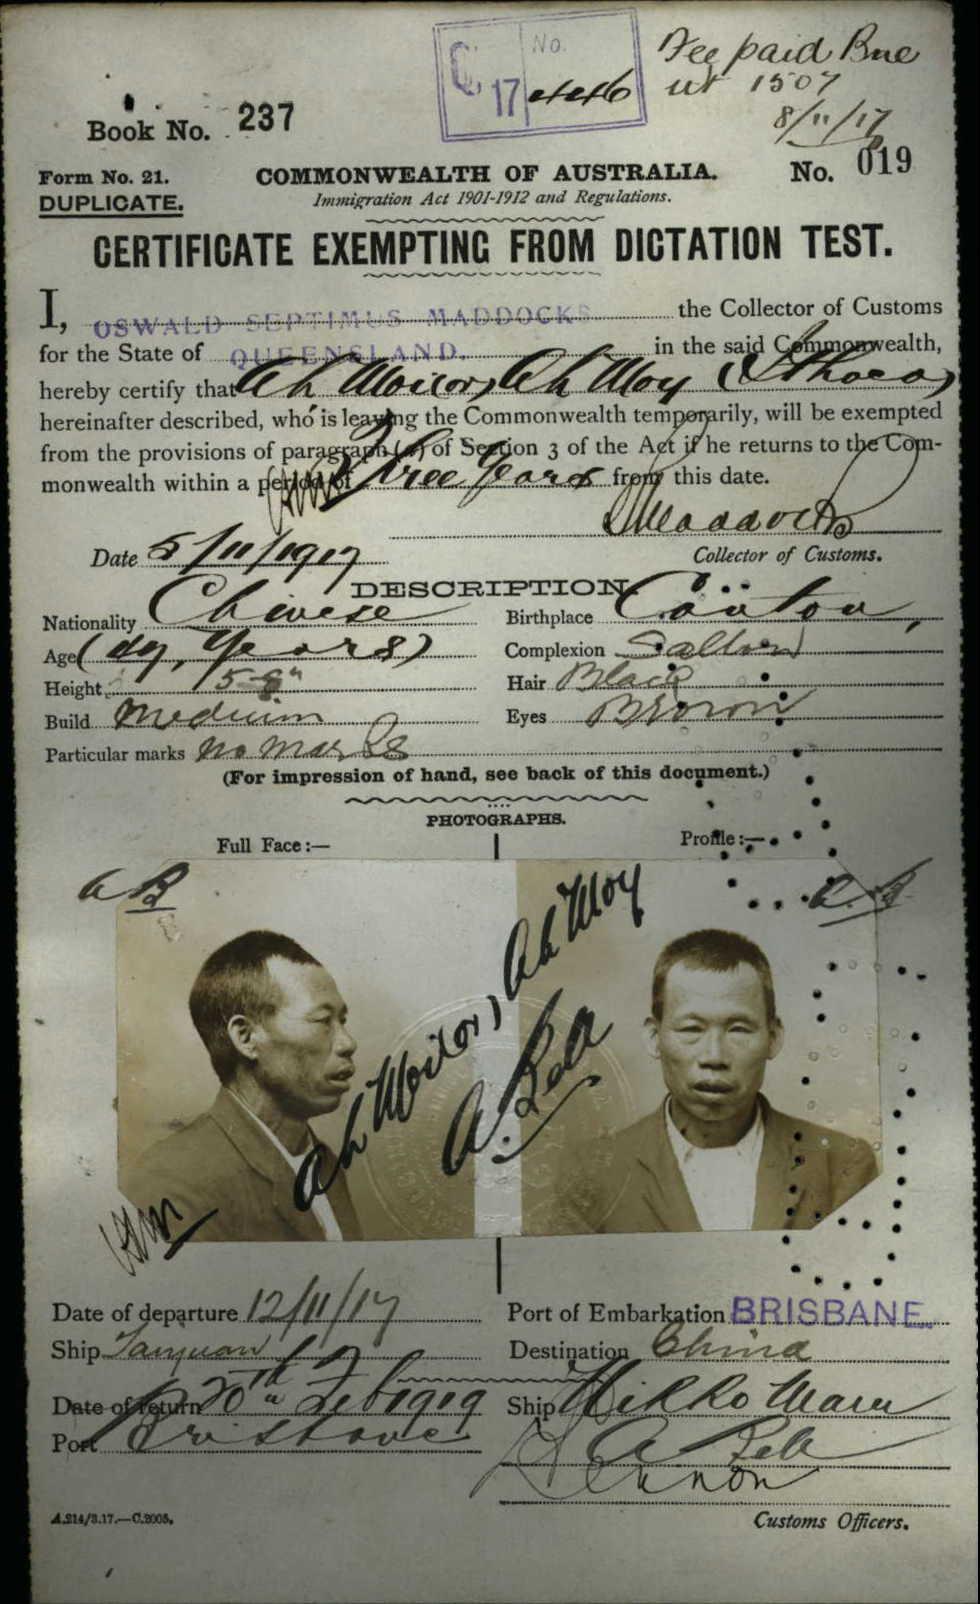 C 17 No. 446
Fee paid Bne
8/11/17
Book No. 237
Form No. 21.
COMMONWEALTH OF AUSTRALIA.
No. 019
DUPLICATE.
Immigration Act 1901-1912 and Regulations.
CERTIFICATE EXEMPTING FROM DICTATION TEST.
I, OSWALD SEPTIMUS MADDOCKS the Collector of Customs
for the State of QUEENSLAND. in the said Commonwealth,
hereby certify that Ah Moi (or) Ah Moy (Ithaca)
hereinafter described, who is leaving the Commonwealth temporarily, will be exempted
from the provisions of paragraph (a) of Section 3 of the Act if he returns to the Com-
monwealth within a period of Three Years from this date.
Maddocks
Date 5/11/1917
Collector of Customs.
DESCRIPTION
Nationality Chinese
Birthplace Canton,
Age (49, Years)
Complexion Sallow
Height 5-8"
Hair Black
Build Medium
Eyes Brown
Particular marks no marks
(For impression of hand, see back of this document.)
PHOTOGRAPHS.
Full Face:—
Profile:—
A B
A. B
Ah Moi (or) Ah Moy
A. Bell
Date of departure 12/11/17
Port of Embarkation BRISBANE.
Ship Taiyuan
Destination China
Date of return 20th Feb 1919
Ship Nikko Maru
Port Brisbane
A Bell
Lennon
A.214/3.17.—C.2005.
Customs Officers.